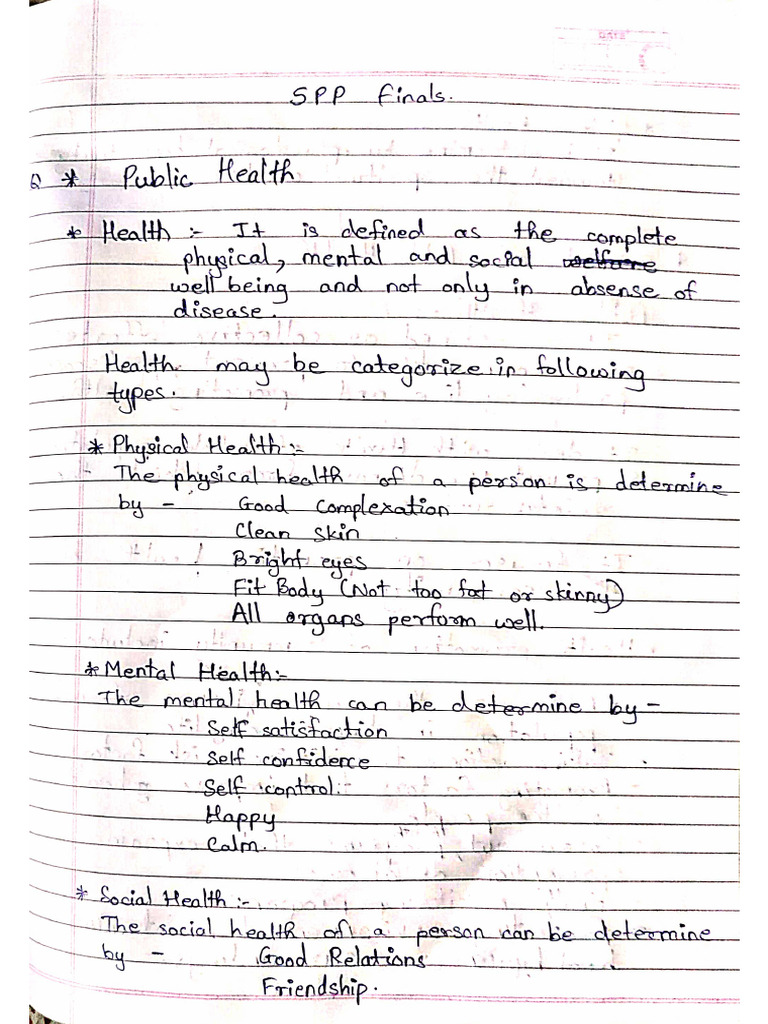 DATE
SPP Finals.
Q * Public Health
* Health :- It is defined as the complete
physical, mental and social welfare
well being and not only in absense of
disease.
Health may be categorize in following
types.
* Physical Health :-
- The physical health of a person is determine
by - Good Complexation
Clean skin
Bright eyes
Fit Body (Not too fat or skinny)
All organs perform well.
* Mental Health :-
The mental health can be determine by -
Self satisfaction
Self confidence
Self control.
Happy
Calm.
* Social Health :-
The social health of a person can be determine
by - Good Relations
Friendship.